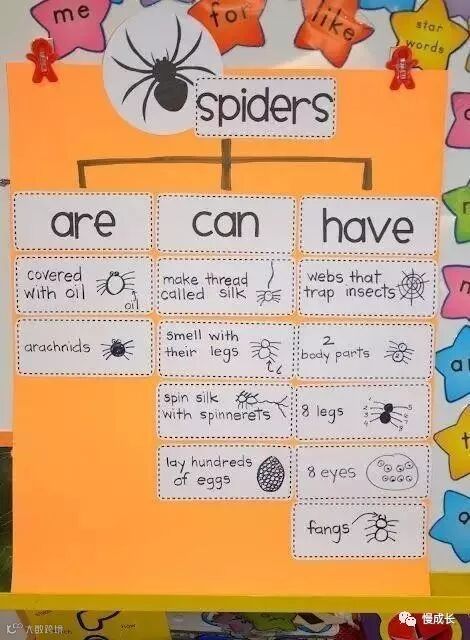 me
for
like
star
words
spiders
are
can
have
covered
with oil
oil
arachnids
make thread
called silk
smell with
their legs
spin silk
with spinnerets
lay hundreds
of eggs
webs that
trap insects
2
body parts
8 legs
1
2
3
4
5
6
7
8
8 eyes
fangs
大数跨境
慢成长